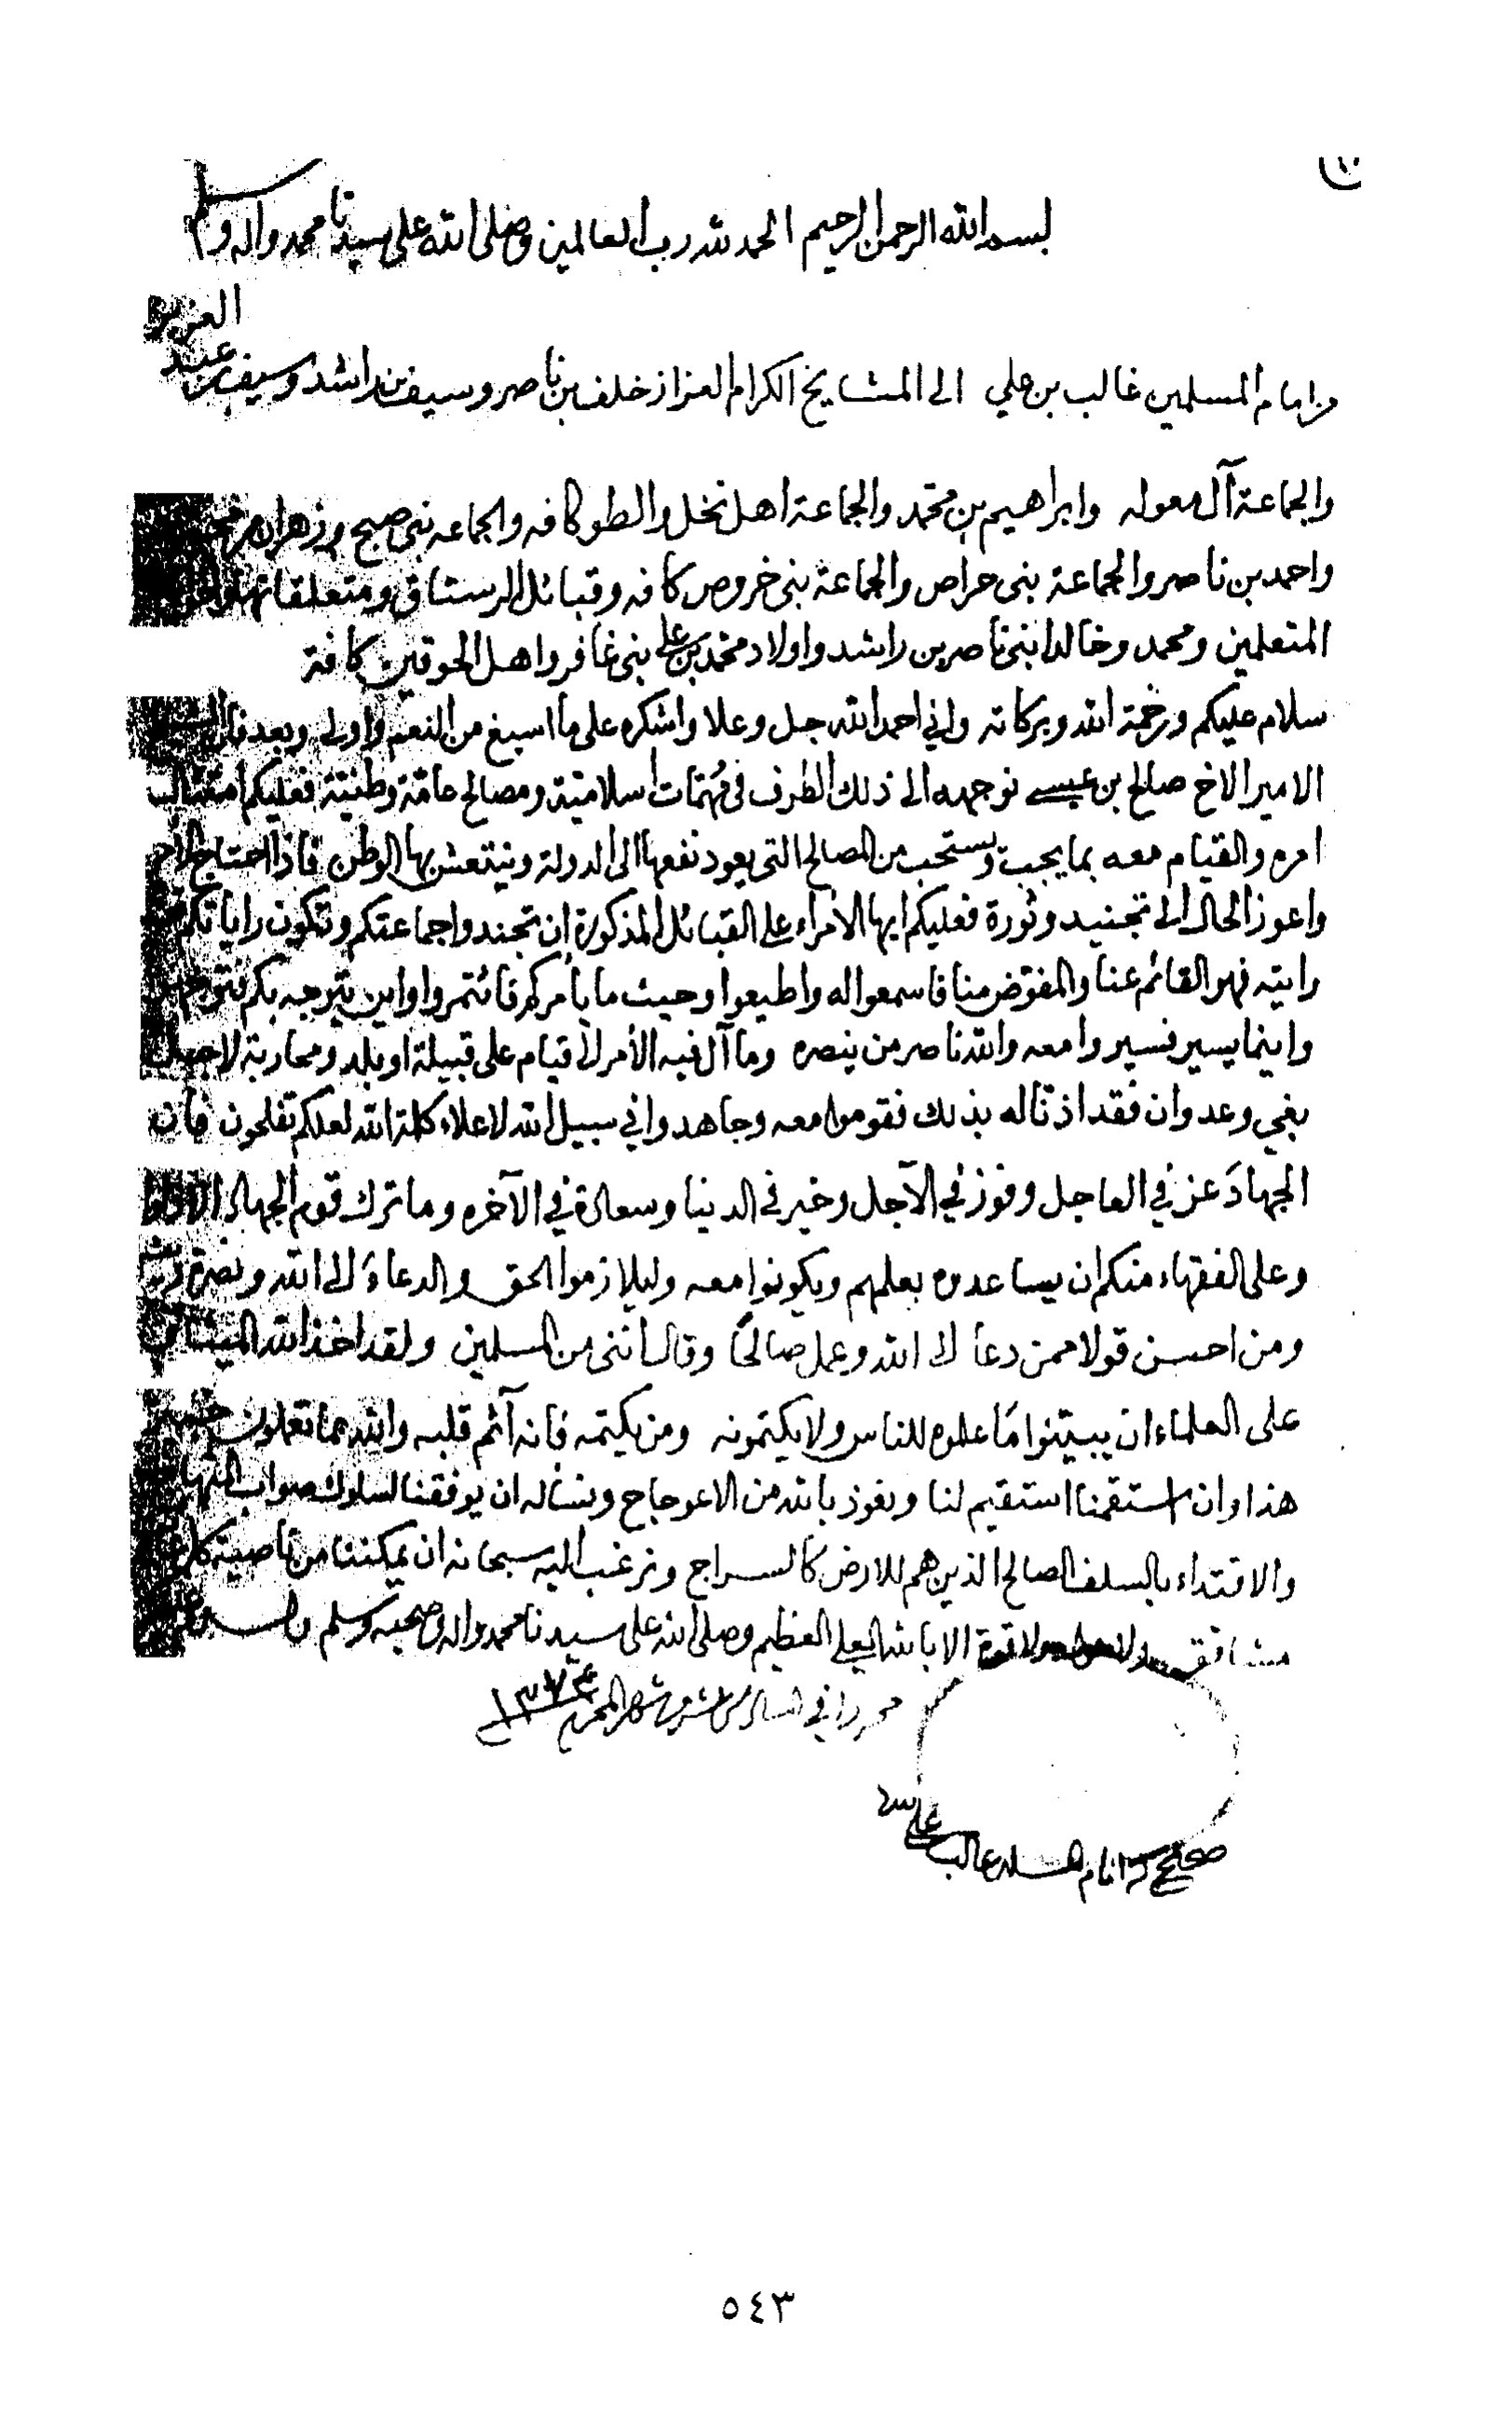 بسم الله الرحمن الرحيم الحمد لله رب العالمين وصلى الله على سيدنا محمد واله وسلم
العزيز
من امام المسلمين غالب بن علي الى المشايخ الكرام العزاز خلف بن ناصر وسيف بن راشد وسيف بن عبد
والجماعة آل معوله وابراهيم بن محمد والجماعة اهل نخل والطو كافه والجماعه بني صبح وزهران بن محمد
واحمد بن ناصر والجماعة بني حراص والجماعة بني خروص كافه وقبائل الرستاق ومتعلقاتها
المتعلمين ومحمد وخالد ابني ناصر بن راشد واولاد محمد بن علي بني غافر واهل الحوقين كافة
سلام عليكم ورحمة الله وبركاته واني احمد الله جل وعلا واشكره على ما اسبغ من النعم واولى وبعد فان
الامير الاخ صالح بن عيسى نوجهه الى ذلك الطرف في مهمات اسلامية ومصالح عامة وطنية فعليكم امتثال
امره والقيام معه بما يجب ويستحب من المصالح التى يعود نفعها الى الدولة وينتعش بها الوطن فاذا احتاج الامر
واعوز الحال الى تجنيد وثورة فعليكم ايها الامراء على القبائل المذكورة ان تجندوا جماعتكم وتكون راياتكم
رايته فهو القائم عنا والمفوض منا فاسمعوا له واطيعوا وحيث ما يأمركم فائتمروا واين يتوجه بكم فتوجهوا
واينما يسير فسيروا معه والله ناصر من ينصره وما آل فيه الأمر لا قيام على قبيلة او بلد ومحاربة لاجل
بغي وعدوان فقد اذنّا له بذلك فقوموا معه وجاهدوا في سبيل الله لاعلاء كلمة الله لعلكم تفلحون فان
الجهاد عز في العاجل وفوز في الآجل وخير في الدنيا وسعادة في الآخره وما ترك قوم الجهاد الا
وعلى الفقهاء منكم ان يساعدوه بعلمهم ويكونوا معه وليلازموا الحق والدعاء الى الله ونصرة دينه
ومن احسن قولا ممن دعا الى الله وعمل صالحًا وقال انني من المسلمين ولقد اخذ الله الميثاق
على العلماء ان يبينوا ما علموه للناس ولا يكتمونه ومن يكتمه فانه آثم قلبه والله بما تعملون خبير
هذا وان استقمنا استقيم لنا ونعوذ بالله من الاعوجاج ونسأله ان يوفقنا لسلوك صواب المنهاج
والاقتداء بالسلف الصالح الذين هم للارض كالسراج ونرغب اليه سبحانه ان يمكننا من ناصية كل
مشاقق ولا حول ولا قوة الا بالله العلي العظيم وصلى الله على سيدنا محمد واله وصحبه وسلم والسلام
حرر في شهر المحرم ١٣٧٤
صحيح من امام المسلمين غالب بن علي
٥٤٣